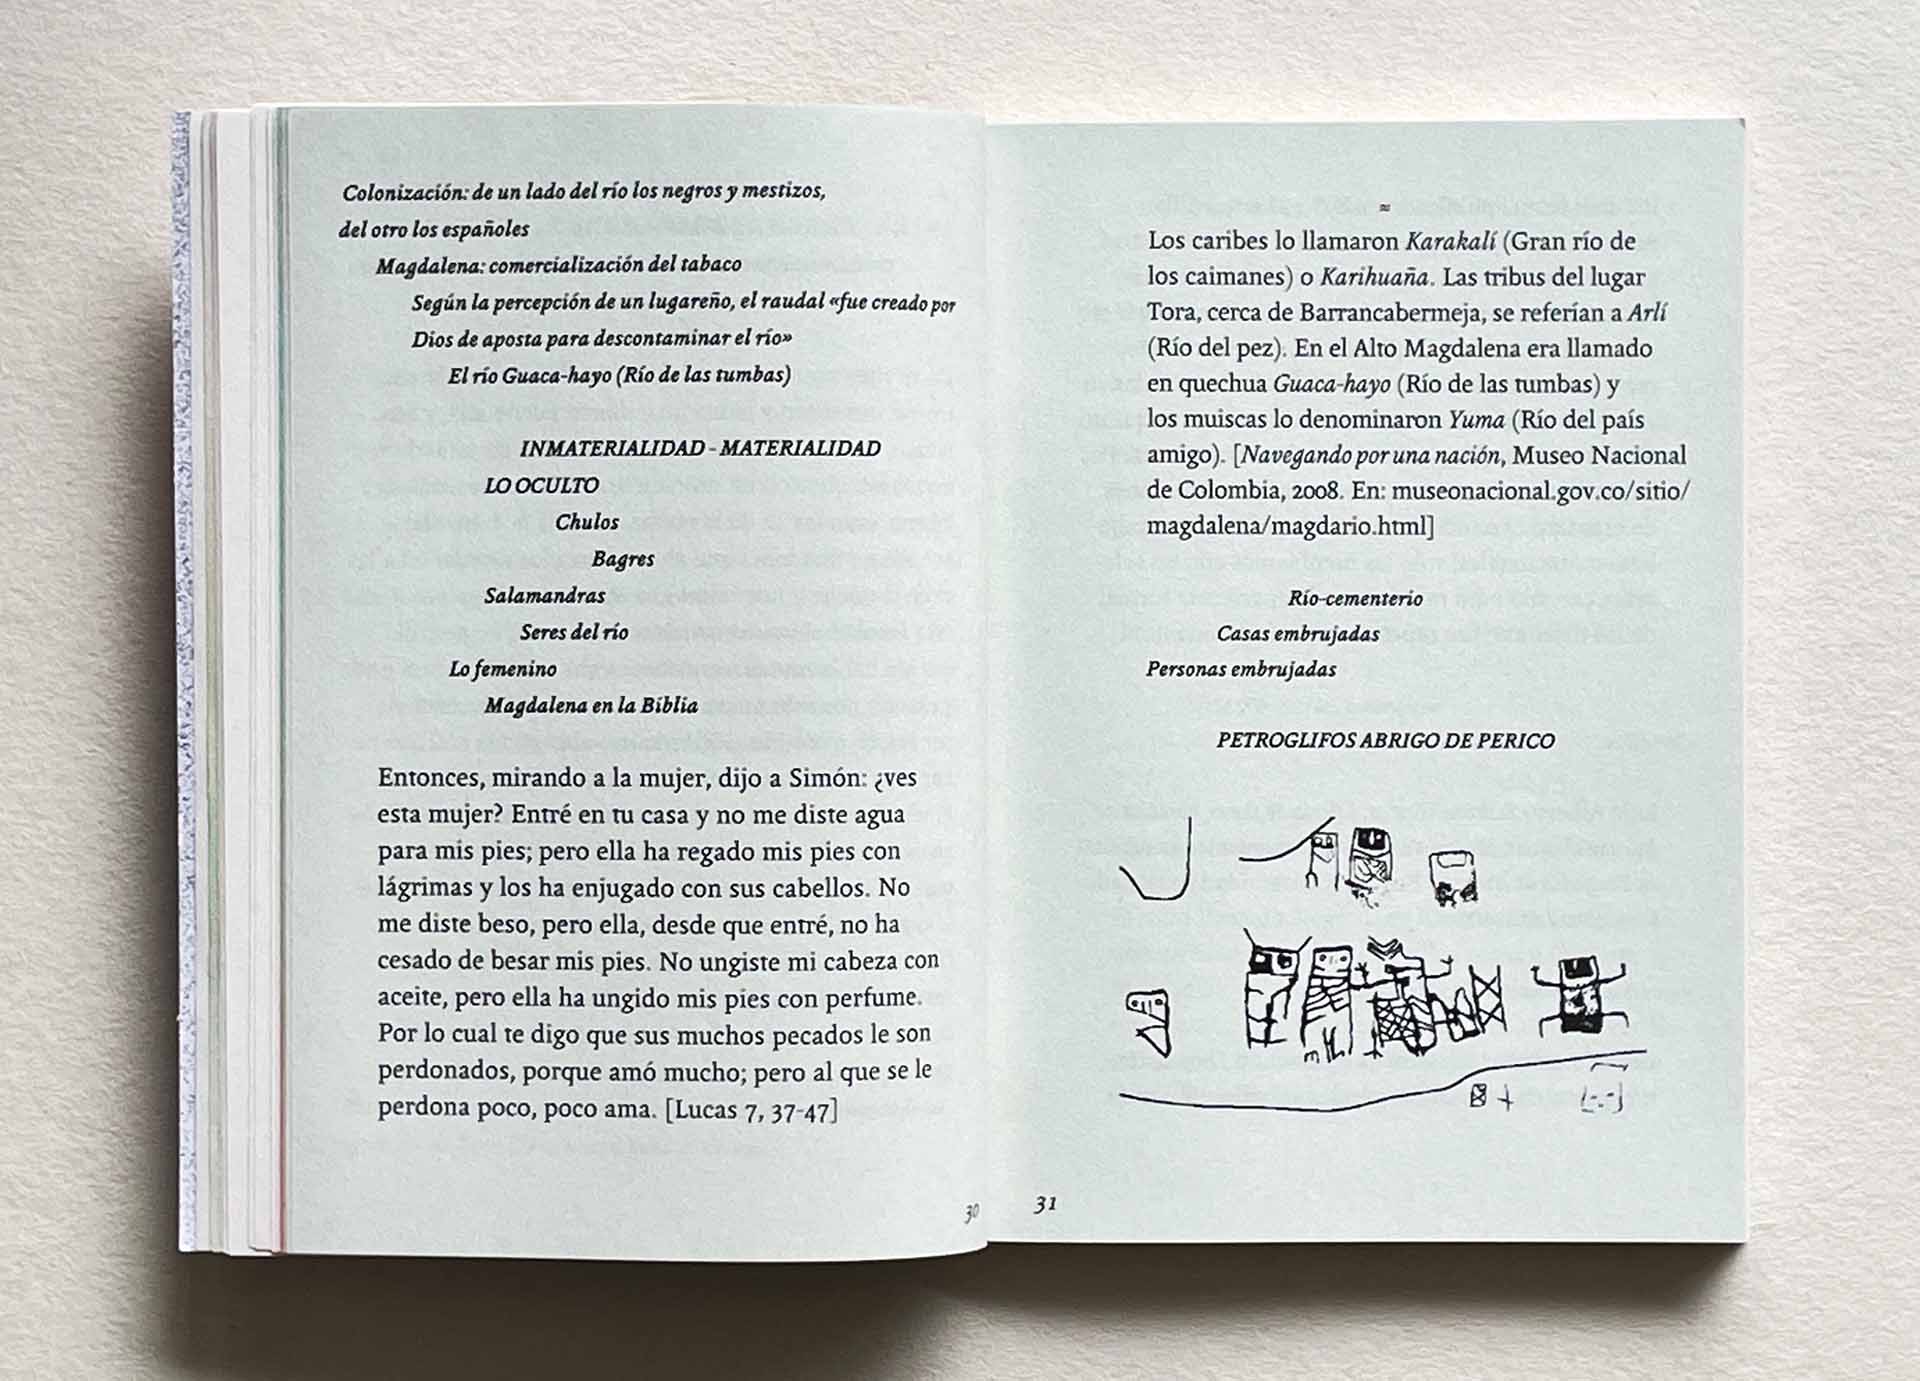 Colonización: de un lado del río los negros y mestizos,
del otro los españoles
Magdalena: comercialización del tabaco
Según la percepción de un lugareño, el raudal «fue creado por
Dios de aposta para descontaminar el río»
El río Guaca-hayo (Río de las tumbas)
INMATERIALIDAD - MATERIALIDAD
LO OCULTO
Chulos
Bagres
Salamandras
Seres del río
Lo femenino
Magdalena en la Biblia
Entonces, mirando a la mujer, dijo a Simón: ¿ves
esta mujer? Entré en tu casa y no me diste agua
para mis pies; pero ella ha regado mis pies con
lágrimas y los ha enjugado con sus cabellos. No
me diste beso, pero ella, desde que entré, no ha
cesado de besar mis pies. No ungiste mi cabeza con
aceite, pero ella ha ungido mis pies con perfume.
Por lo cual te digo que sus muchos pecados le son
perdonados, porque amó mucho; pero al que se le
perdona poco, poco ama. [Lucas 7, 37-47]
30
≈
Los caribes lo llamaron Karakalí (Gran río de
los caimanes) o Karihuaña. Las tribus del lugar
Tora, cerca de Barrancabermeja, se referían a Arlí
(Río del pez). En el Alto Magdalena era llamado
en quechua Guaca-hayo (Río de las tumbas) y
los muiscas lo denominaron Yuma (Río del país
amigo). [Navegando por una nación, Museo Nacional
de Colombia, 2008. En: museonacional.gov.co/sitio/
magdalena/magdario.html]
Río-cementerio
Casas embrujadas
Personas embrujadas
PETROGLIFOS ABRIGO DE PERICO
31